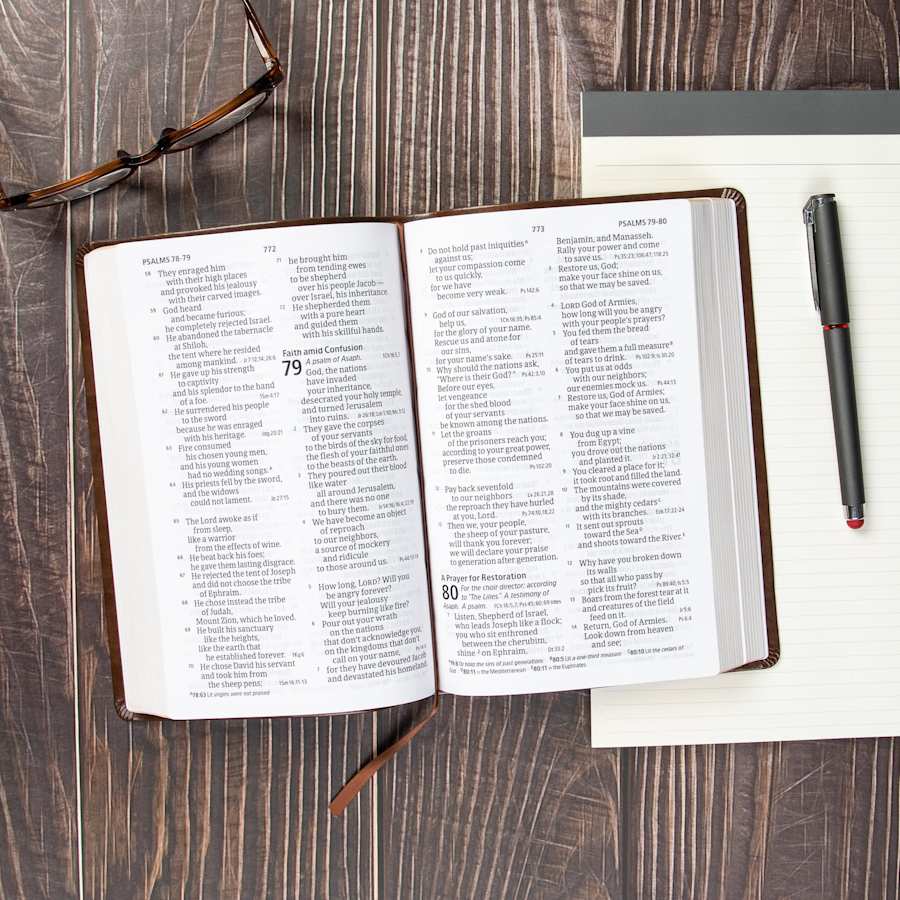 PSALMS 78-79
772
58 They enraged him
with their high places
and provoked his jealousy
with their carved images.
59 God heard
and became furious;
he completely rejected Israel.
60 He abandoned the tabernacle
at Shiloh,
the tent where he resided
among mankind.
61 He gave up his strength
to captivity
and his splendor to the hand
of a foe.
62 He surrendered his people
to the sword
because he was enraged
with his heritage.
63 Fire consumed
his chosen young men,
and his young women
had no wedding songs.
64 His priests fell by the sword,
and the widows
could not lament.
65 The Lord awoke as if
from sleep,
like a warrior
from the effects of wine.
66 He beat back his foes;
he gave them lasting disgrace.
67 He rejected the tent of Joseph
and did not choose the tribe
of Ephraim.
68 He chose instead the tribe
of Judah,
Mount Zion, which he loved.
69 He built his sanctuary
like the heights,
like the earth that
he established forever.
70 He chose David his servant
and took him from
the sheep pens;
78:63 Lit virgins were not praised
71 he brought him
from tending ewes
to be shepherd
over his people Jacob —
over Israel, his inheritance.
72 He shepherded them
with a pure heart
and guided them
with his skillful hands.
Faith amid Confusion
79 A psalm of Asaph.
God, the nations
have invaded
your inheritance,
desecrated your holy temple,
and turned Jerusalem
into ruins.
2 They gave the corpses
of your servants
to the birds of the sky for food,
the flesh of your faithful ones
to the beasts of the earth.
3 They poured out their blood
like water
all around Jerusalem,
and there was no one
to bury them.
4 We have become an object
of reproach
to our neighbors,
a source of mockery
and ridicule
to those around us.
5 How long, LORD? Will you
be angry forever?
Will your jealousy
keep burning like fire?
6 Pour out your wrath
on the nations
that don't acknowledge you,
on the kingdoms that don't
call on your name,
7 for they have devoured Jacob
and devastated his homeland.
773
PSALMS 79-80
8 Do not hold past iniquities
against us;
let your compassion come
to us quickly,
for we have
become very weak. Ps 142:6
9 God of our salvation,
help us,
for the glory of your name.
Rescue us and atone for
our sins,
for your name's sake. Ps 25:11
10 Why should the nations ask,
"Where is their God?" Ps 42:3,10
Before our eyes,
let vengeance
for the shed blood
of your servants
be known among the nations.
11 Let the groans
of the prisoners reach you;
according to your great power,
preserve those condemned
to die. Ps 102:20
12 Pay back sevenfold
to our neighbors
the reproach they have hurled
at you, Lord.
13 Then we, your people,
the sheep of your pasture,
will thank you forever;
we will declare your praise
to generation after generation.
A Prayer for Restoration
80 For the choir director: according
to "The Lilies." A testimony of
Asaph. A psalm.
1 Listen, Shepherd of Israel,
who leads Joseph like a flock;
you who sit enthroned
between the cherubim,
shine 2 on Ephraim,
Benjamin, and Manasseh.
Rally your power and come
to save us.
3 Restore us, God;
make your face shine on us,
so that we may be saved.
4 LORD God of Armies,
how long will you be angry
with your people's prayers?
5 You fed them the bread
of tears
and gave them a full measure
of tears to drink.
6 You put us at odds
with our neighbors;
our enemies mock us. Ps 44:13
7 Restore us, God of Armies;
make your face shine on us,
so that we may be saved.
8 You dug up a vine
from Egypt;
you drove out the nations
and planted it.
9 You cleared a place for it;
it took root and filled the land.
10 The mountains were covered
by its shade,
and the mighty cedars
with its branches.
11 It sent out sprouts
toward the Sea
and shoots toward the River.
12 Why have you broken down
its walls
so that all who pass by
pick its fruit?
13 Boars from the forest tear at it
and creatures of the field
feed on it. Jr 5:6
14 Return, God of Armies.
Look down from heaven
and see;
79:8 Or hold the sins of past generations
80:5 Lit a one-third measure
80:10 Lit the cedars of
80:11 = the Mediterranean
80:11 = the Euphrates